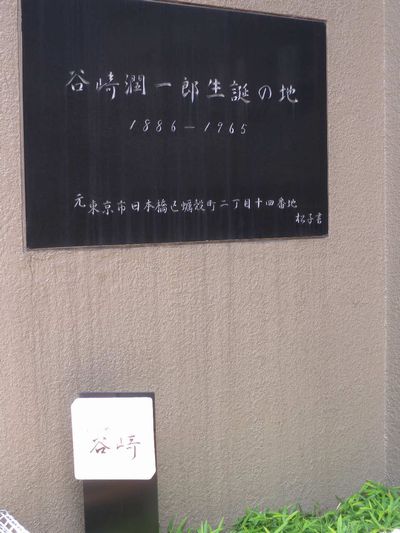 谷崎潤一郎生誕の地
1886-1965
元東京市日本橋区蠣殻町二丁目十四番地
松子書
谷崎